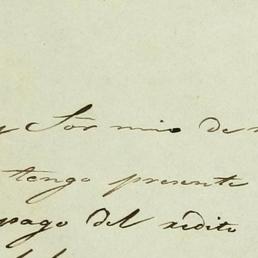 y Sor mio de
tengo presente
pago del redito